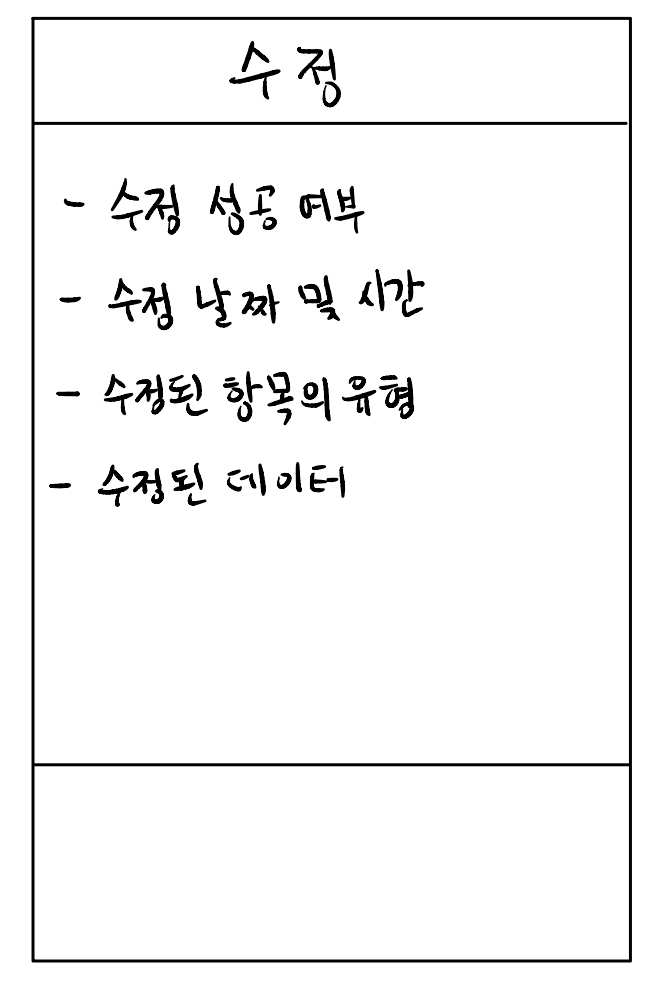 수정
- 수정 성공 여부
- 수정 날짜 및 시간
- 수정된 항목의 유형
- 수정된 데이터